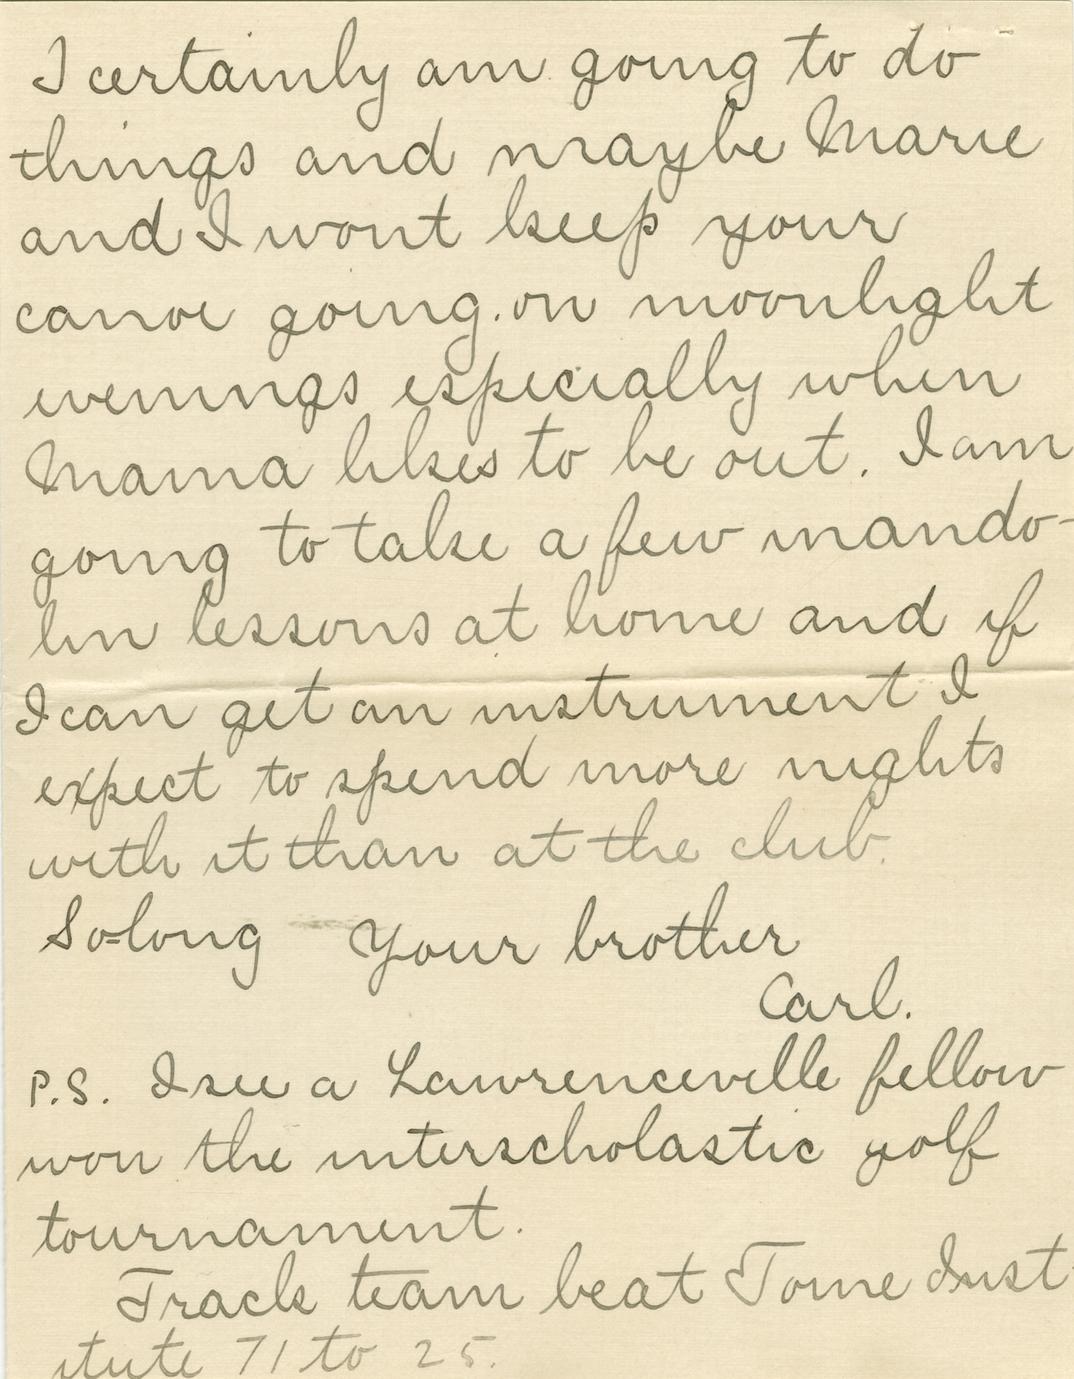 I certainly am going to do
things and maybe Marie
and I wont keep your
canoe going on moonlight
evenings especially when
Mama likes to be out. I am
going to take a few mando-
lin lessons at home and if
I can get an instrument I
expect to spend more nights
with it than at the club.
So-long Your brother
Carl.
P.S. I see a Lawrenceville fellow
won the interscholastic golf
tournament.
Track team beat Tome Inst-
itute 71 to 25.